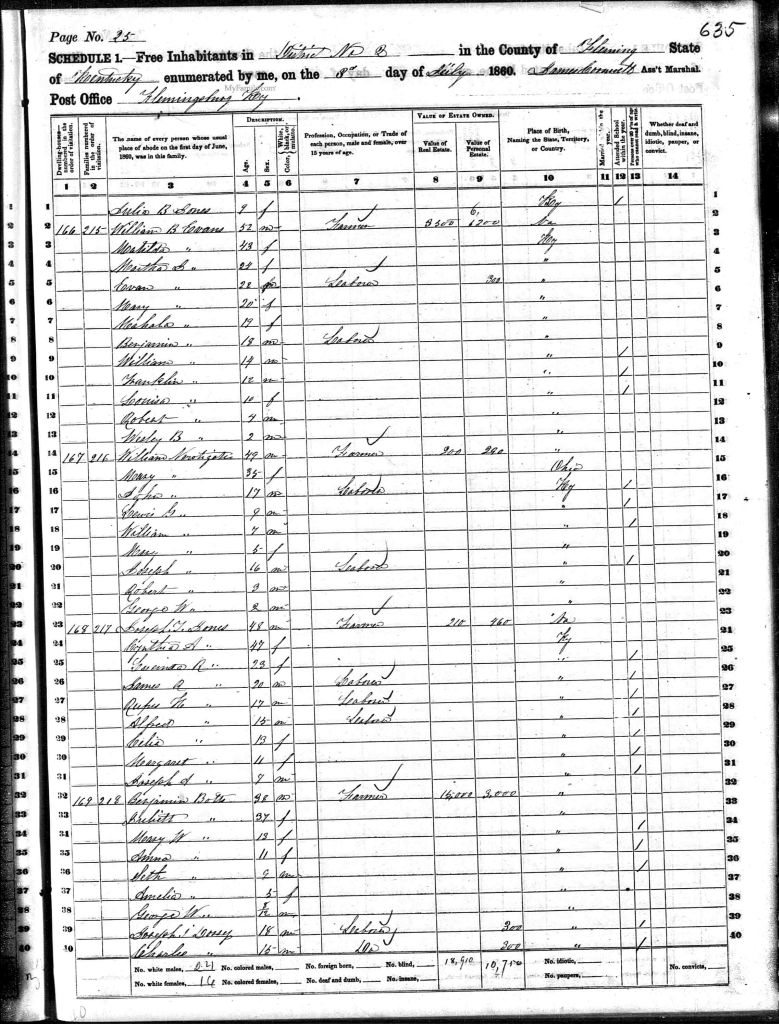 635
Page No. 25
SCHEDULE 1.—Free Inhabitants in District No 2 in the County of Fleming State
of Kentucky enumerated by me, on the day of July 1860. Ass't Marshal.
MyFamily.com
Post Office Flemingsburg Ky
Dwelling-houses—numbered in the order of visitation.
Families numbered in the order of visitation.
The name of every person whose usual place of abode on the first day of June, 1860, was in this family.
DESCRIPTION.
Age.
Sex.
Color, White, black, or mulatto.
Profession, Occupation, or Trade of each person, male and female, over 15 years of age.
VALUE OF ESTATE OWNED.
Value of Real Estate.
Value of Personal Estate.
Place of Birth, Naming the State, Territory, or Country.
Married within the year.
Attended School within the year.
Persons over 20 y'rs of age who cannot read & write.
Whether deaf and dumb, blind, insane, idiotic, pauper, or convict.
1 2 3 4 5 6 7 8 9 10 11 12 13 14
1 Julia B Jones 9 f Ky / 1
2 166 215 William B Evans 52 m Farmer 8500 6,200 Va 2
3 Matilda " 43 f Ky 3
4 Martha " 24 f " 4
5 Evan " 22 Labore 300 " 5
6 Mary " 20 f " 6
7 Mahala " 19 f " 7
8 Benjamin " 18 m Labore " 8
9 William " 14 m " / 9
10 Franklin " 12 m " / 10
11 Louisa " 10 f " / 11
12 Robert " m " 12
13 Wesley B " 2 m " 13
14 167 216 William 49 m Farmer 200 " 14
15 Mary " 35 f Ohio 15
16 " 17 m Labore Ky / 16
17 Lewis " 9 m " / 17
18 William " 7 m " / 18
19 Mary " 5 f " 19
20 Joseph " 16 m Labore " / 20
21 Robert " 3 m " 21
22 George W " 2 m " 22
23 168 217 Joseph Jones 48 m Farmer 210 460 Va 23
24 Cynthia A " 47 f Ky 24
25 Lucinda A " 23 f " / 25
26 James A " 20 m Labore " / 26
27 Rufus " 17 m Labore " / 27
28 Alfred " 15 m Labore " / 28
29 Celia " 13 f " / 29
30 Margaret " 11 f " / 30
31 Joseph " 7 m " / 31
32 169 218 Benjamin Botts 38 m Farmer 3,000 " 32
33 " 37 f " 33
34 Mary W " 12 f " / 34
35 Anna " 11 f " / 35
36 Seth " 9 m " / 36
37 Amelia " 5 f " 37
38 George W " m " 38
39 Joseph Dorsey 18 m Labore 300 " / 39
40 Charles " 15 m Do 300 " / 40
No. white males, 24 No. colored males, No. foreign born, No. blind, 18,910 10,750 No. idiotic, No. convicts,
No. white females, 16 No. colored females, No. deaf and dumb, No. insane, No. paupers,